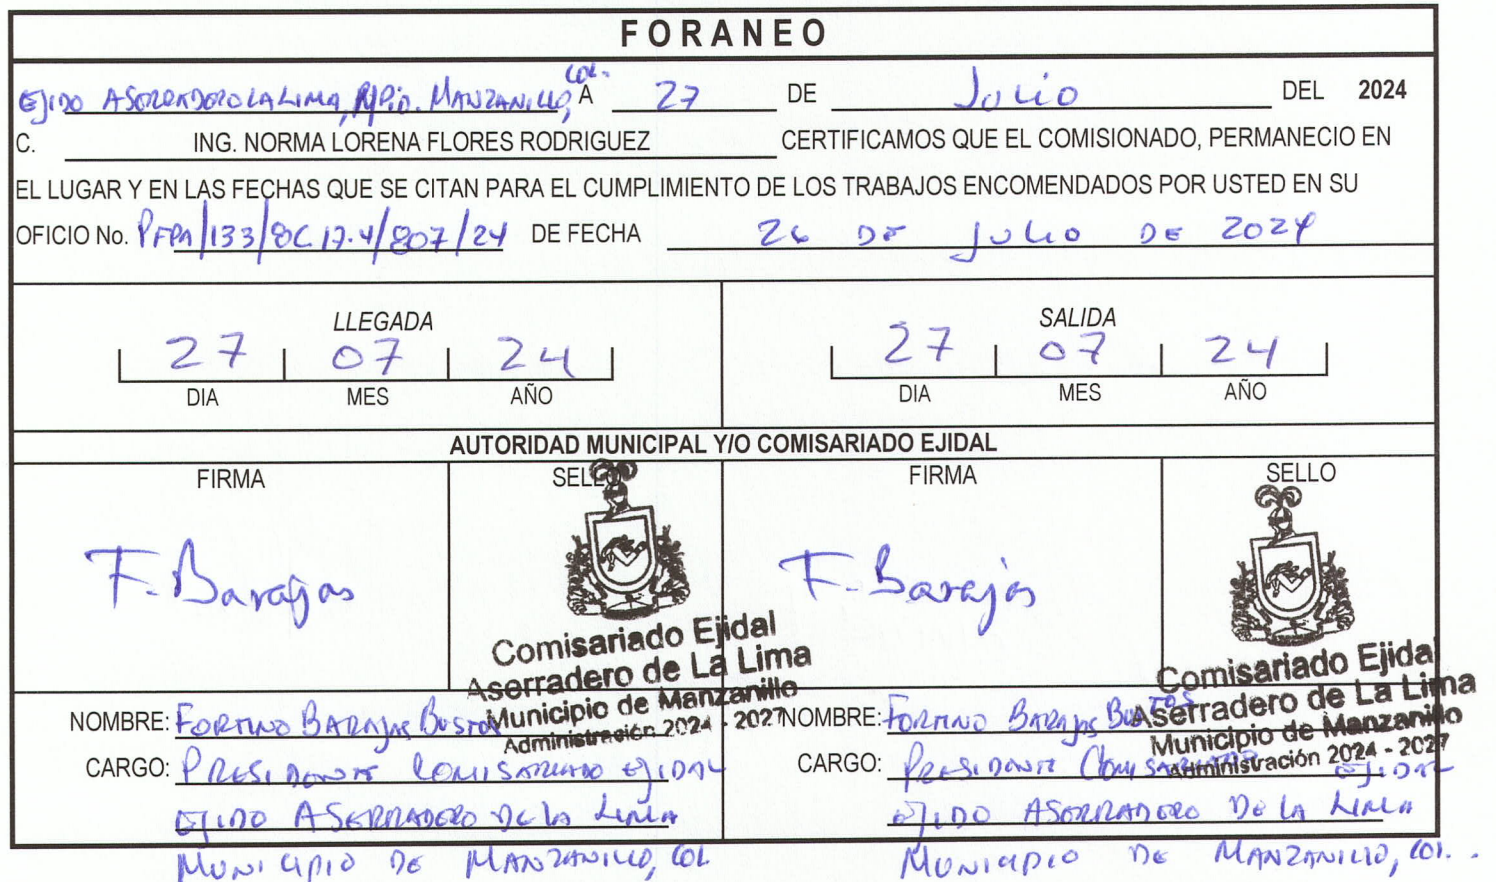 FORANEO
EJIDO ASERRADERO LA LIMA, MPIO. MANZANILLO, COL. A 27 DE Julio DEL 2024
C. ING. NORMA LORENA FLORES RODRIGUEZ CERTIFICAMOS QUE EL COMISIONADO, PERMANECIO EN
EL LUGAR Y EN LAS FECHAS QUE SE CITAN PARA EL CUMPLIMIENTO DE LOS TRABAJOS ENCOMENDADOS POR USTED EN SU
OFICIO No. PFPA/133/8C.17.4/807/24 DE FECHA 26 DE Julio DE 2024
LLEGADA
27 07 24
DIA MES AÑO
SALIDA
27 07 24
DIA MES AÑO
AUTORIDAD MUNICIPAL Y/O COMISARIADO EJIDAL
FIRMA SELLO FIRMA SELLO
F. Barajas
Comisariado Ejidal
Aserradero de La Lima
Municipio de Manzanillo
Administración 2024 - 2027
F. Barajas
Comisariado Ejidal
Aserradero de La Lima
Municipio de Manzanillo
Administración 2024 - 2027
NOMBRE: FORTINO BARAJAS BUSTOS
CARGO: PRESIDENTE COMISARIADO EJIDAL
EJIDO ASERRADERO DE LA LIMA
MUNICIPIO DE MANZANILLO, COL
NOMBRE: FORTINO BARAJAS BUSTOS
CARGO: PRESIDENTE COMISARIADO EJIDAL
EJIDO ASERRADERO DE LA LIMA
MUNICIPIO DE MANZANILLO, COL.